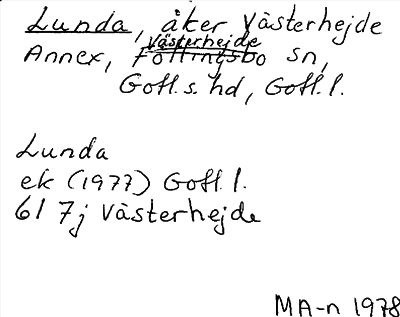 Lunda, åker Västerhejde
Västerhejde
Annex, Follingsbo sn,
Gotl.s. hd, Gotl. l.
Lunda
ek (1977) Gotl. l.
6I 7j Västerhejde
MA-n 1978